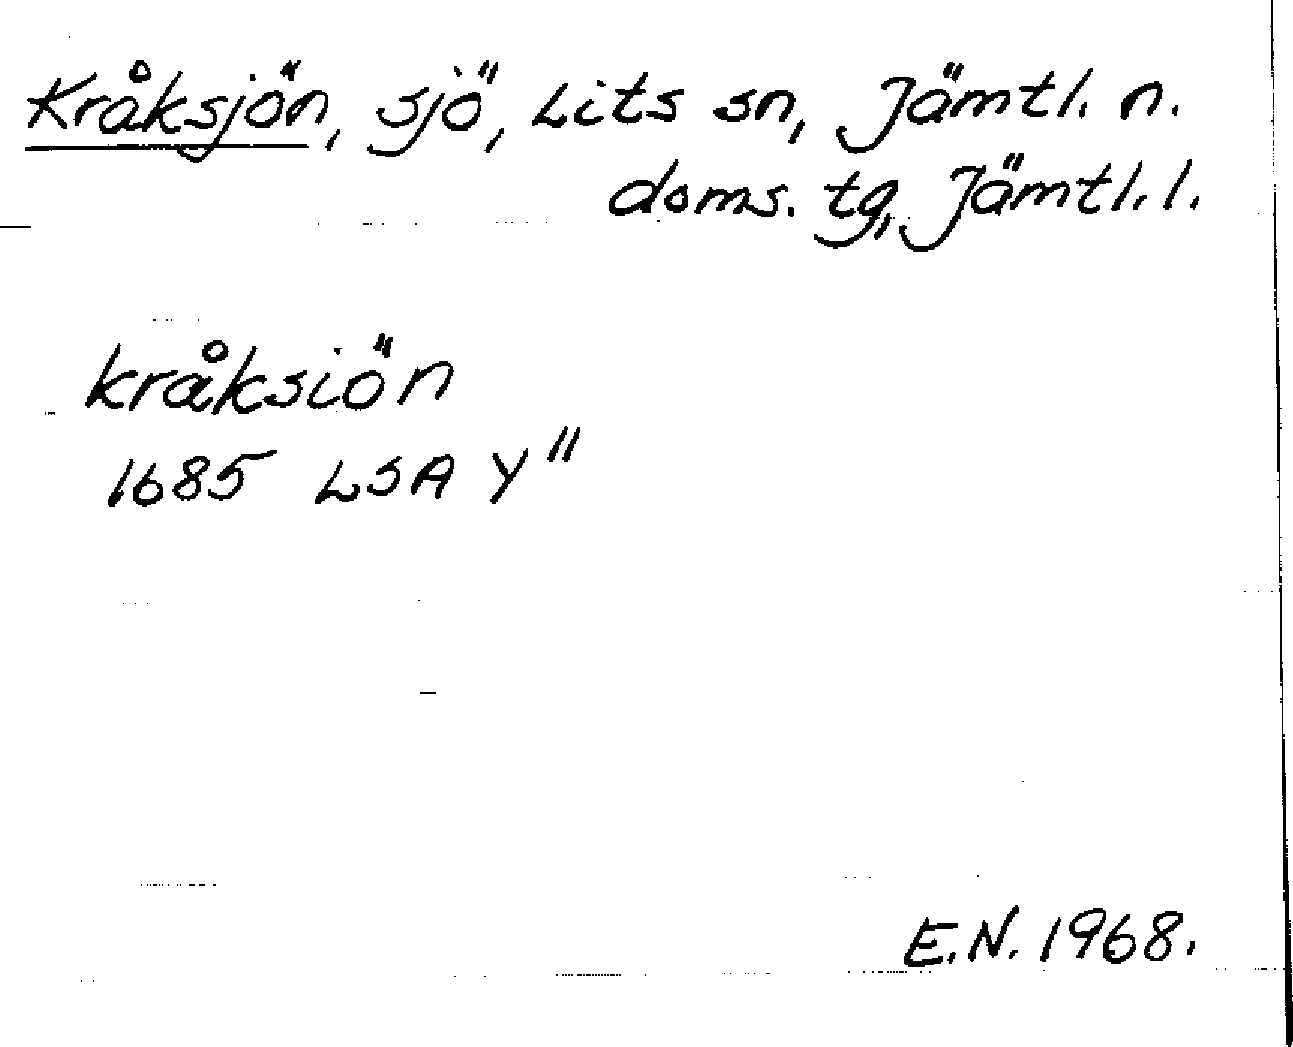 Kråksjön, sjö, Lits sn, Jämtl. n.
doms. tg, Jämtl. l.
kråksiön
1685 LSA Y"
E.N. 1968.